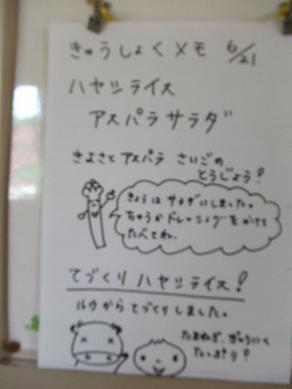 きゅうしょくメモ 6/21
ハヤシライス
アスパラサラダ
きよさと アスパラ さいごの
とうじょう!
きょうは サラダにしました。
ちゅうかドレッシングをかけて
たべてね。
てづくり ハヤシライス!
ルウから てづくりしました。
たまねぎ、ぎゅうにく
たっぷり!